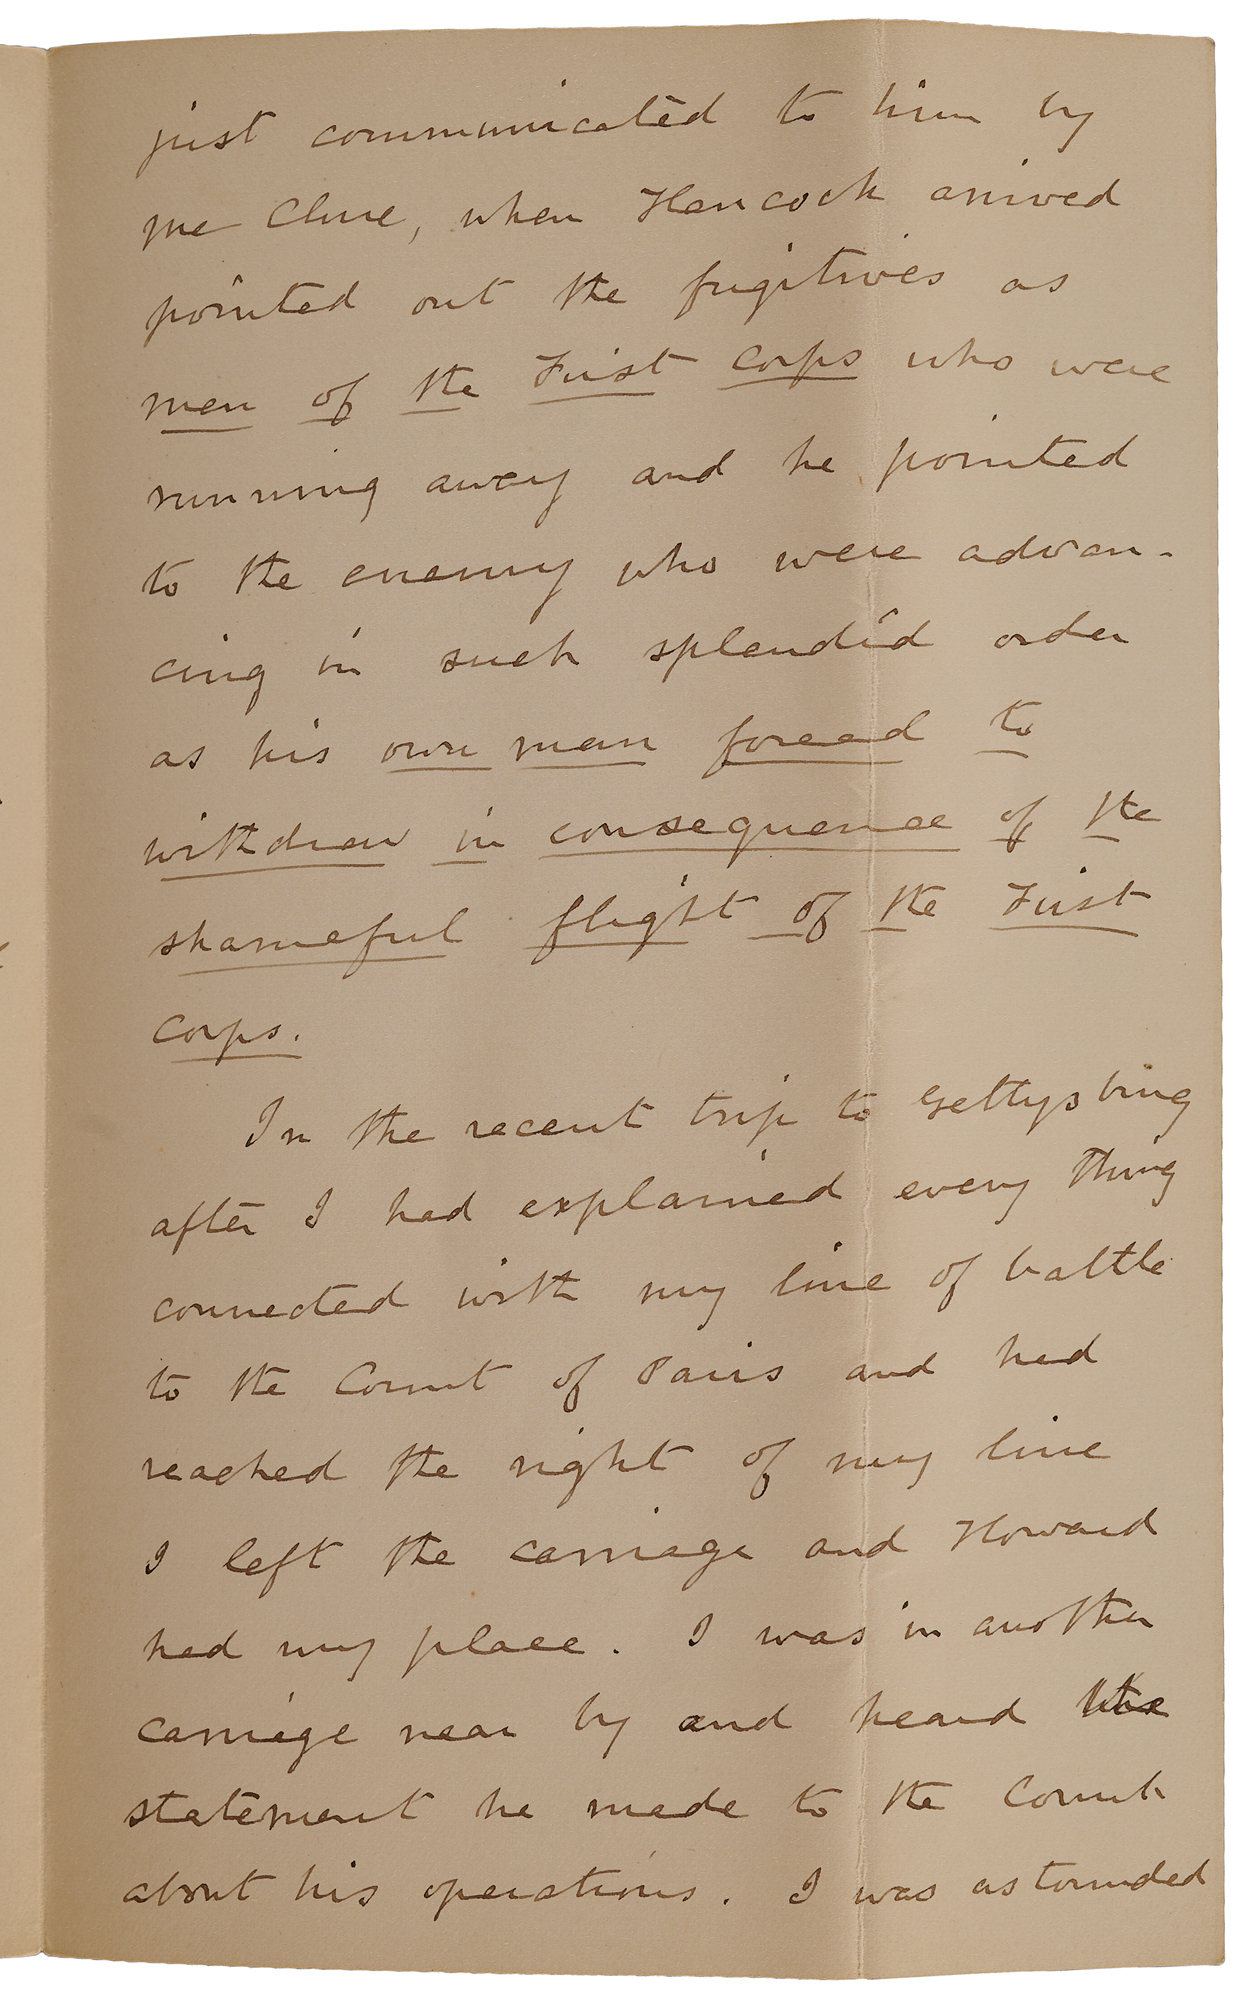 just communicated to him by
Mc Clure, when Hancock arrived
pointed out the fugitives as
men of the First Corps who were
running away and he pointed
to the enemy who were advan-
cing in such splendid order
as his own men forced to
withdraw in consequence of the
shameful flight of the First
Corps.
In the recent trip to Gettysburg
after I had explained every thing
connected with my line of battle
to the Count of Paris and had
reached the right of my line
I left the carriage and Howard
had my place. I was in another
carriage near by and heard the
statement he made to the Count
about his operations. I was astounded